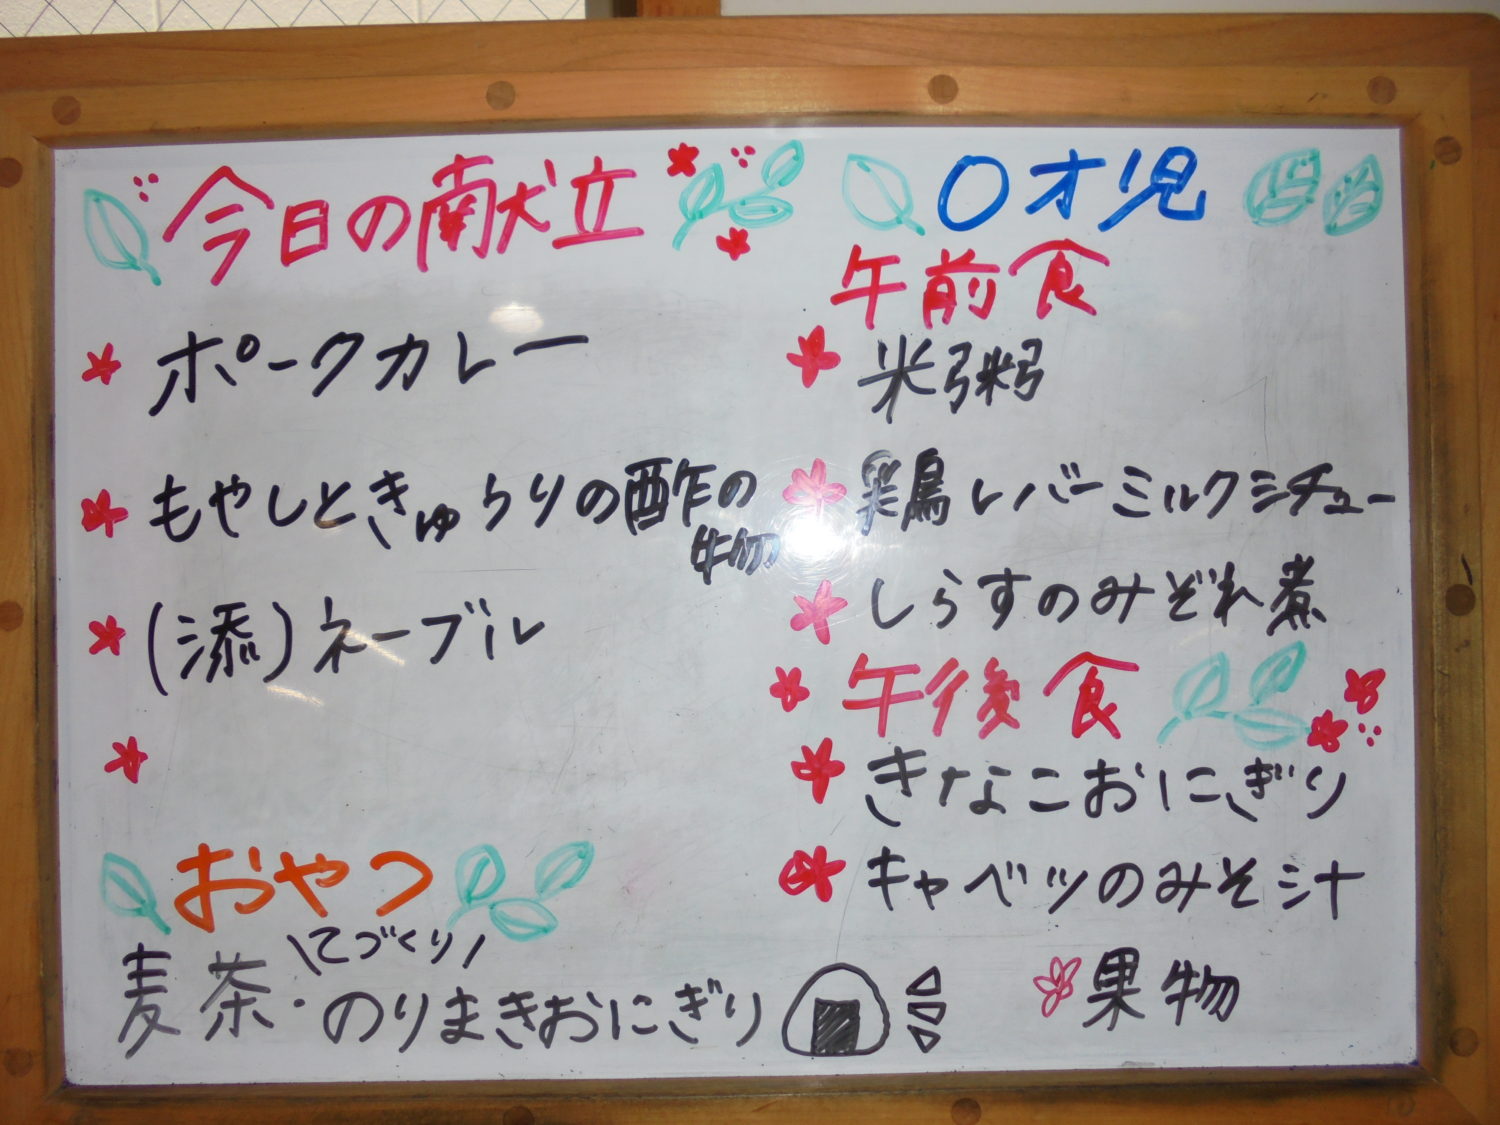 今日の献立
ポークカレー
もやしときゅうりの酢の
物
(添)ネーブル
おやつ
\てづくり/
麦茶・のりまきおにぎり
0才児
午前食
米粥
鶏レバーミルクシチュー
しらすのみぞれ煮
午後食
きなこおにぎり
キャベツのみそ汁
果物